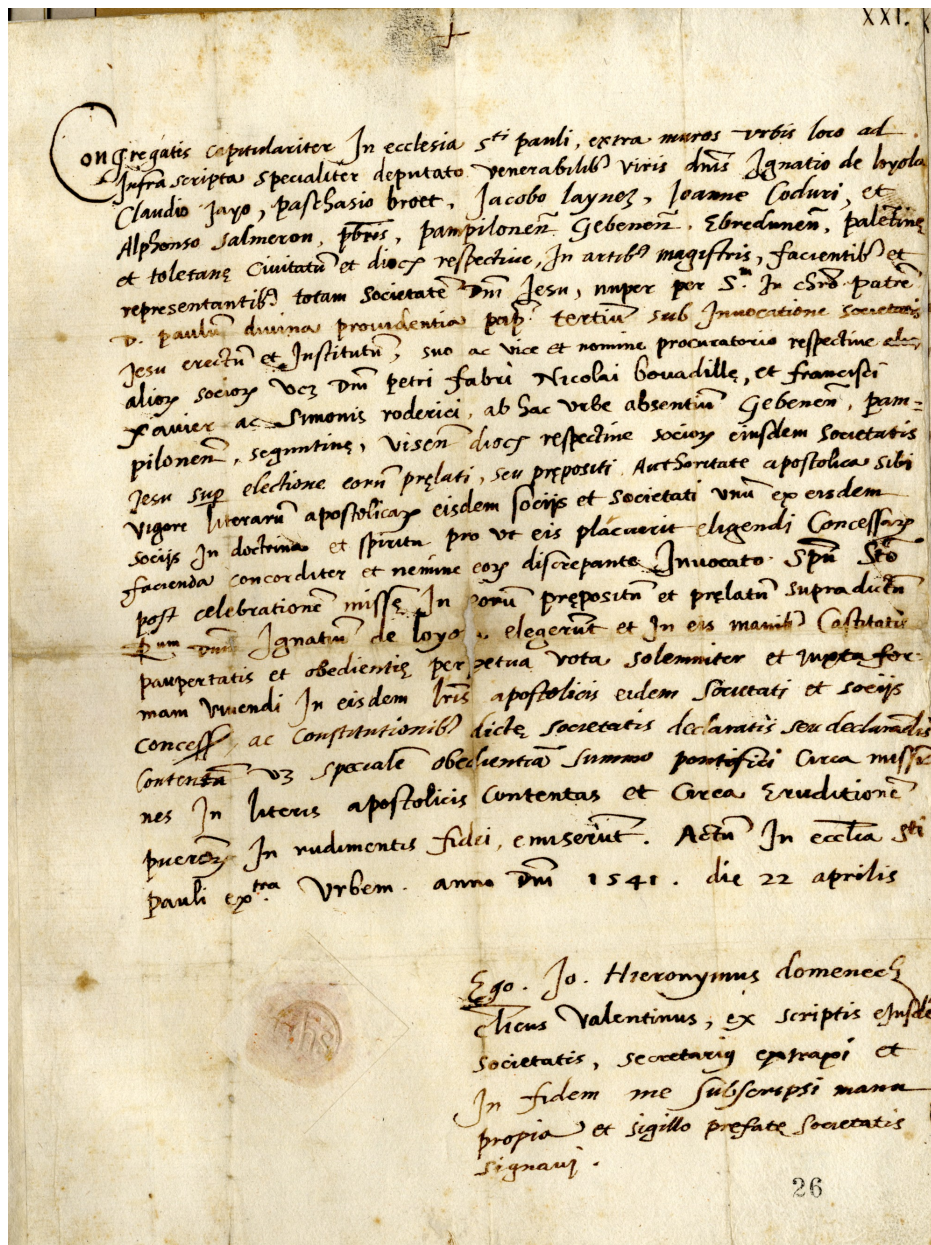 XXI.
Congregatis capitulariter In ecclesia Sti pauli, extra muros urbis loco ad
Infra scripta specialiter deputato venerabilib9 viris dnis Ignatio de loyola
Claudio Jayo, paschasio broet, Jacobo laynez, Joanne Coduri, et
Alphonso Salmeron, pbris, pampilonen̄ Gebenen̄, Ebredunen̄, palētinę
et toletanę Civitatū et dioc respective, In artib9 magistris, facientib9 et
representantib9 totam Societatē Dn̄i Jesu, nuper per S.m In chro patrē
D. paulū divina providentia pap. tertiū sub Invocatione societatis
Jesu erectū et Institutū, suo ac vice et nomine procuratorio respective
alioꝝ socioꝝ vcz Dn̄i petri fabri Nicolai bovadillę, et francisci
xavier ac Simonis roderici, ab hac Urbe absentiū Gebenen̄, pam=
pilonen̄, seguntinę, Visen̄ dioc respective socioꝝ eiusdem societatis
Jesu sup electione eorū pręlati, seu prępositi Authoritate apostolica sibi
vigore literarū apostolicaꝝ eisdem socijs et societati unū ex eisdem
socijs In doctrina et spiritu pro ut eis placuerit eligendi Concessaꝝ
facienda concorditer et nemine eoꝝ discrepante Invocato Spū Stō
post celebrationē missę In eorū prępositū et pręlatū supradictū
Rum Dnū Ignatiū de loyola elegerūt et In eis manib9 Castitatis
paupertatis et obedientię perpetua vota solemniter et iuxta for-
mam vivendi In eisdem lris apostolicis eidem Societati et socijs
concess, ac Constitutionib9 dictę societatis declaratis seu declarandis
Contentā vz specialē obedientiā summo pontifici Circa missio
nes In literis apostolicis Contentas et Circa Eruditionē
pueroꝝ In rudimentis fidei, emiserūt. Actū In ecclia Sti
pauli extra Urbem. anno Dn̄i 1541. die 22 aprilis
Ego. Jo. Hieronymus domenech
clicus Valentinus, ex scriptis eiusdē
societatis, secretarij extraxi et
In fidem me subscripsi manu
propia et sigillo prefatę Societatis
signavi.
yhs
26